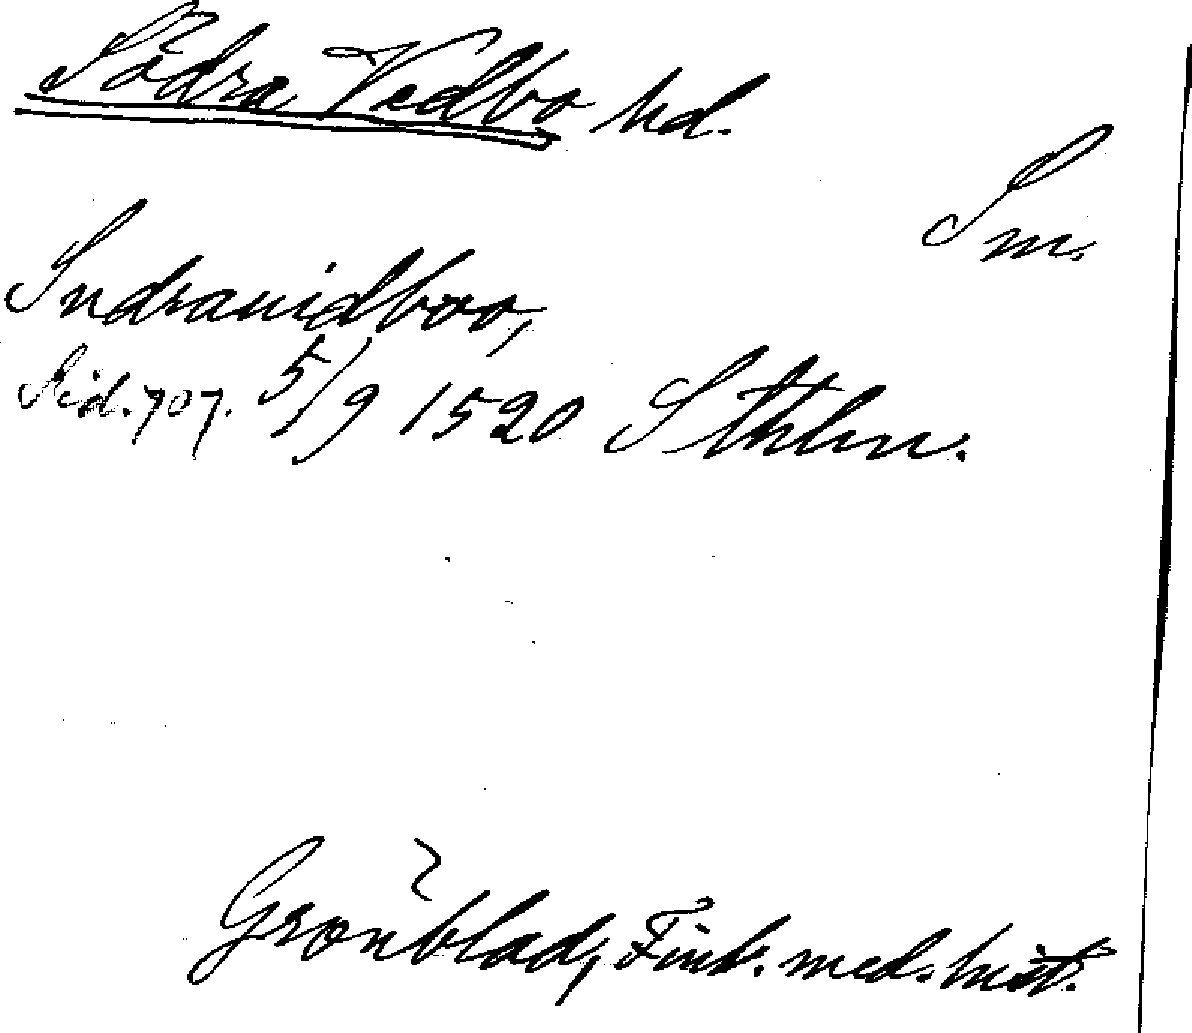 Södra Vedbo hd.
Sm.
Sudrauidboo,
Sid. 707. 5/9 1520 Sthlm.
Grönblad, Finl. med. hist.